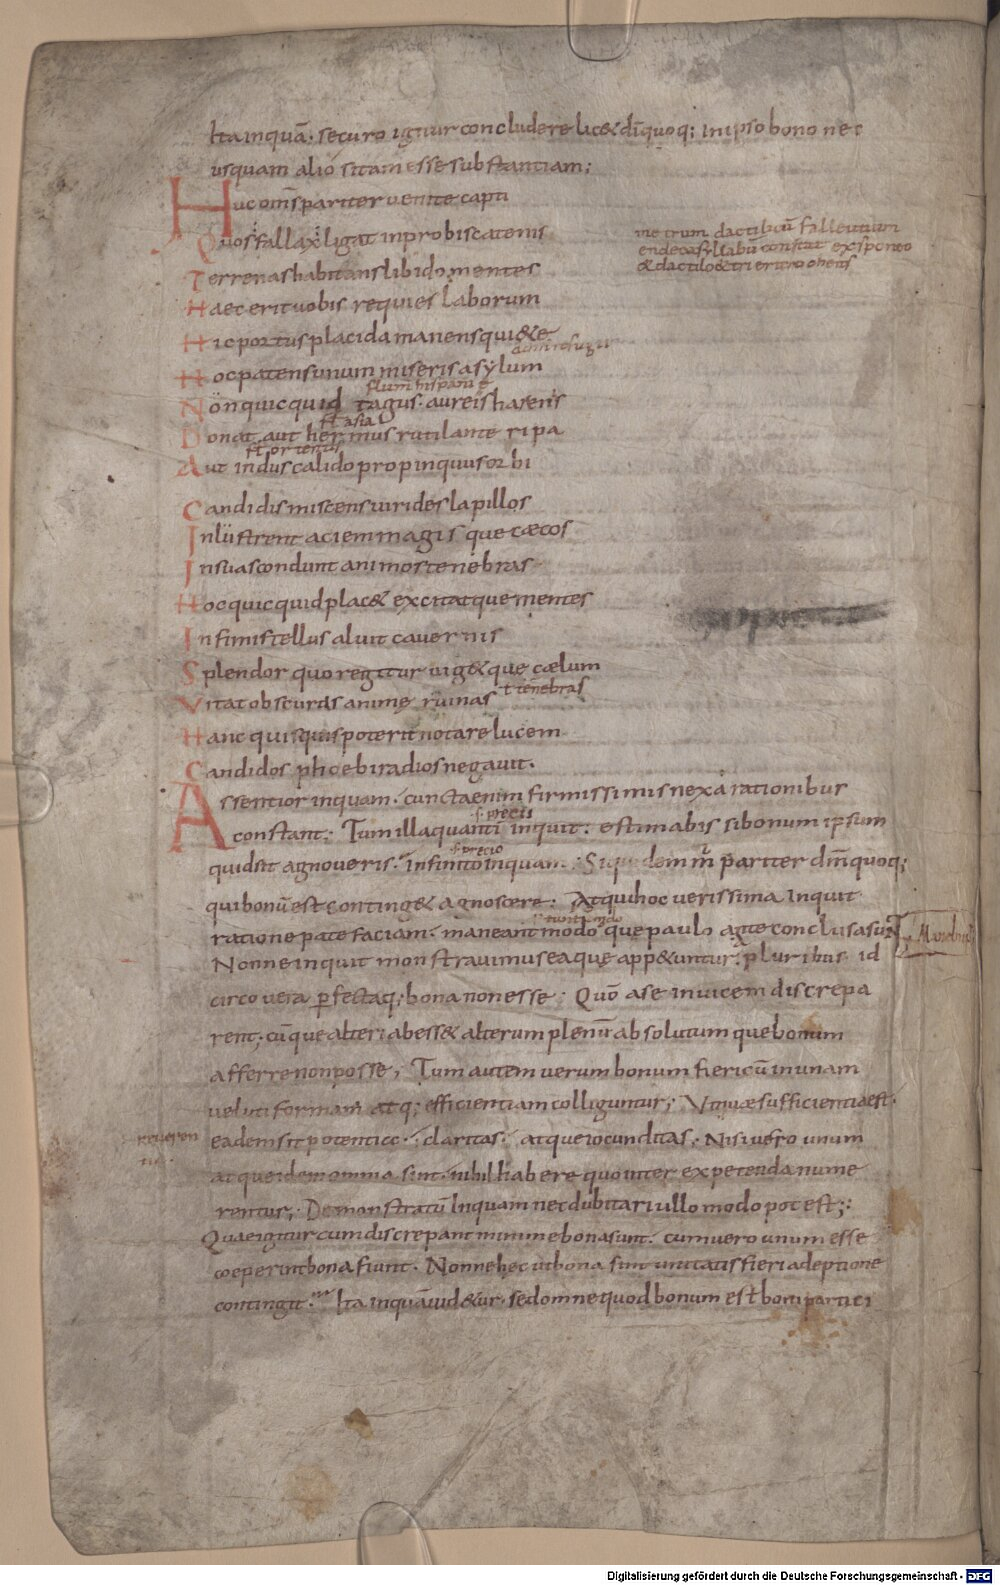 Ita inquā. securo igitur concludere lic& dm̄ quoq; in ipso bono nec
usquam alio sitam esse substantiam;
Huc om̄s pariter venite capti
Quos fallax ligat inprobis catenis
metrum dactilicū falleutium
endecasyllabū constat ex sponeo
& dactilo & tri
Terrenas habitans libido mentes
Haec erit vobis requies laborum
Hic portus placida manens qui&e
Hoc patens unum miseris asylum
flum hispanię
Non quicquid tagus aureis harenis
fl asia
Donat aut hermus rutilante ripa
fl orientis
Aut indus calido propinquus orbi
Candidis miscens virides lapillos
Inlustrent aciem magis que cæcos
In sua scondunt animos tenebras
Hoc quicquid plac& excitatque mentes
Infimis tellus aluit cavernis
Splendor quo regitur vig&que cælum
ł tenebras
Vitat obscuras animę ruinas
Hanc quisquis poterit notare lucem
Candidos phoebi radios negavit.
Assentior inquam. cuncta enim firmissimis nexa rationibus
.s. precii
constant; Tum illa quanti inquit. estimabis si bonum ipsum
.s. precio
quid sit agnoveris. infinito inquam. Siquidem m̄ pariter dm̄ quoq;
qui bonū est conting& agnoscere. Atqui hoc verissima inquit
ratione patefaciam. maneant modo que paulo ante conclusa sunt
Nonne inquit monstravimus ea quę app&untur. pluribus id
circo vera perfectaq; bona non esse. Quō a se invicem discrepa
rent; cūque alteri abess& alterum plenū absolutum que bonum
afferre non posse; Tum autem verum bonum fieri cū in unam
veluti formam atq; efficientiam colliguntur; Ut quæ sufficientia est.
reveren
tia.
eadem sit potentia. claritas. atque iocunditas. Nisi vero unum
atque idem omnia sint. nihil habere quo inter expetenda nume
rentur; Demonstratū Inquam nec dubitari ullo modo potest;
Quae igitur cum discrepant minime bona sunt. cum vero unum esse
coeperint bona fiunt. Nonne hec ut bona sint unitatis fieri adeptione
contingit. Ita inquā vid&ur. sed omne quod bonum est boni partici
Digitalisierung gefördert durch die Deutsche Forschungsgemeinschaft - DFG